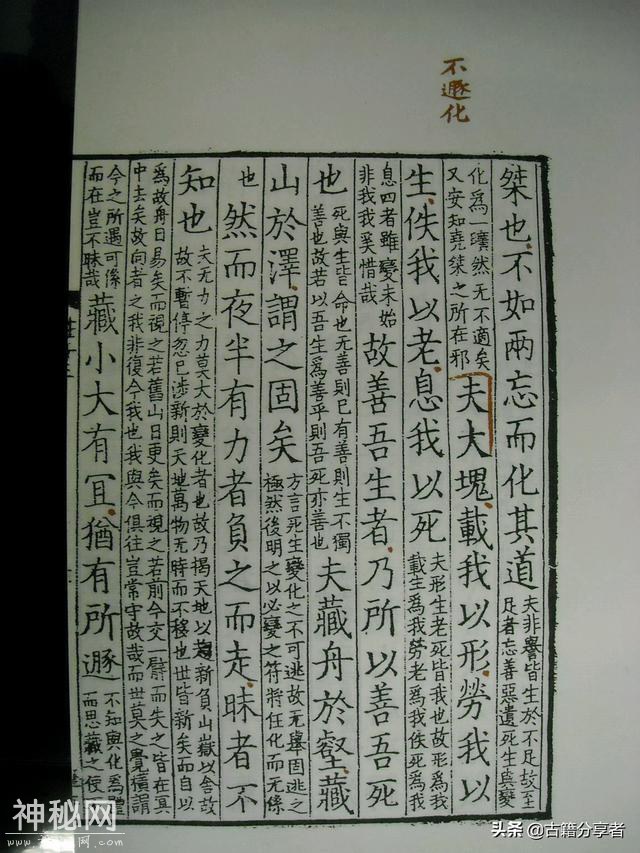 不遯化
桀也不如兩忘而化其道
夫非譽皆生於不足故至
足者忘善惡遺死生與變
化爲一曠然无不適矣
又安知堯桀之所在邪
夫大塊載我以形勞我以
生佚我以老息我以死
夫形生老死皆我也故形爲我
載生爲我勞老爲我佚死爲我
息四者雖變未始
非我我奚惜哉
故善吾生者乃所以善吾死
也
死與生皆命也无善則已有善則生不獨
善也故若以吾生爲善乎則吾死亦善也
夫藏舟於壑藏
山於澤謂之固矣
方言死生變化之不可逃故先舉固逃之
極然後明之以必變之符將任化而无係
也
然而夜半有力者負之而走昧者不
知也
夫无力之力莫大於變化者也故乃揭天地以趨新負山嶽以舍故
故不暫停忽已涉新則天地萬物无時而不移也世皆新矣而自以
爲故舟日易矣而視之若舊山日更矣而視之若前今交一臂而失之皆在冥
中去矣故向者之我非復今我也我與今俱往豈常守故哉而世莫之覺橫謂
今之所遇可係
而在豈不昧哉
藏小大有宜猶有所遯
不知與化爲體
而思藏之使不
神秘网
头条 @古籍分享者